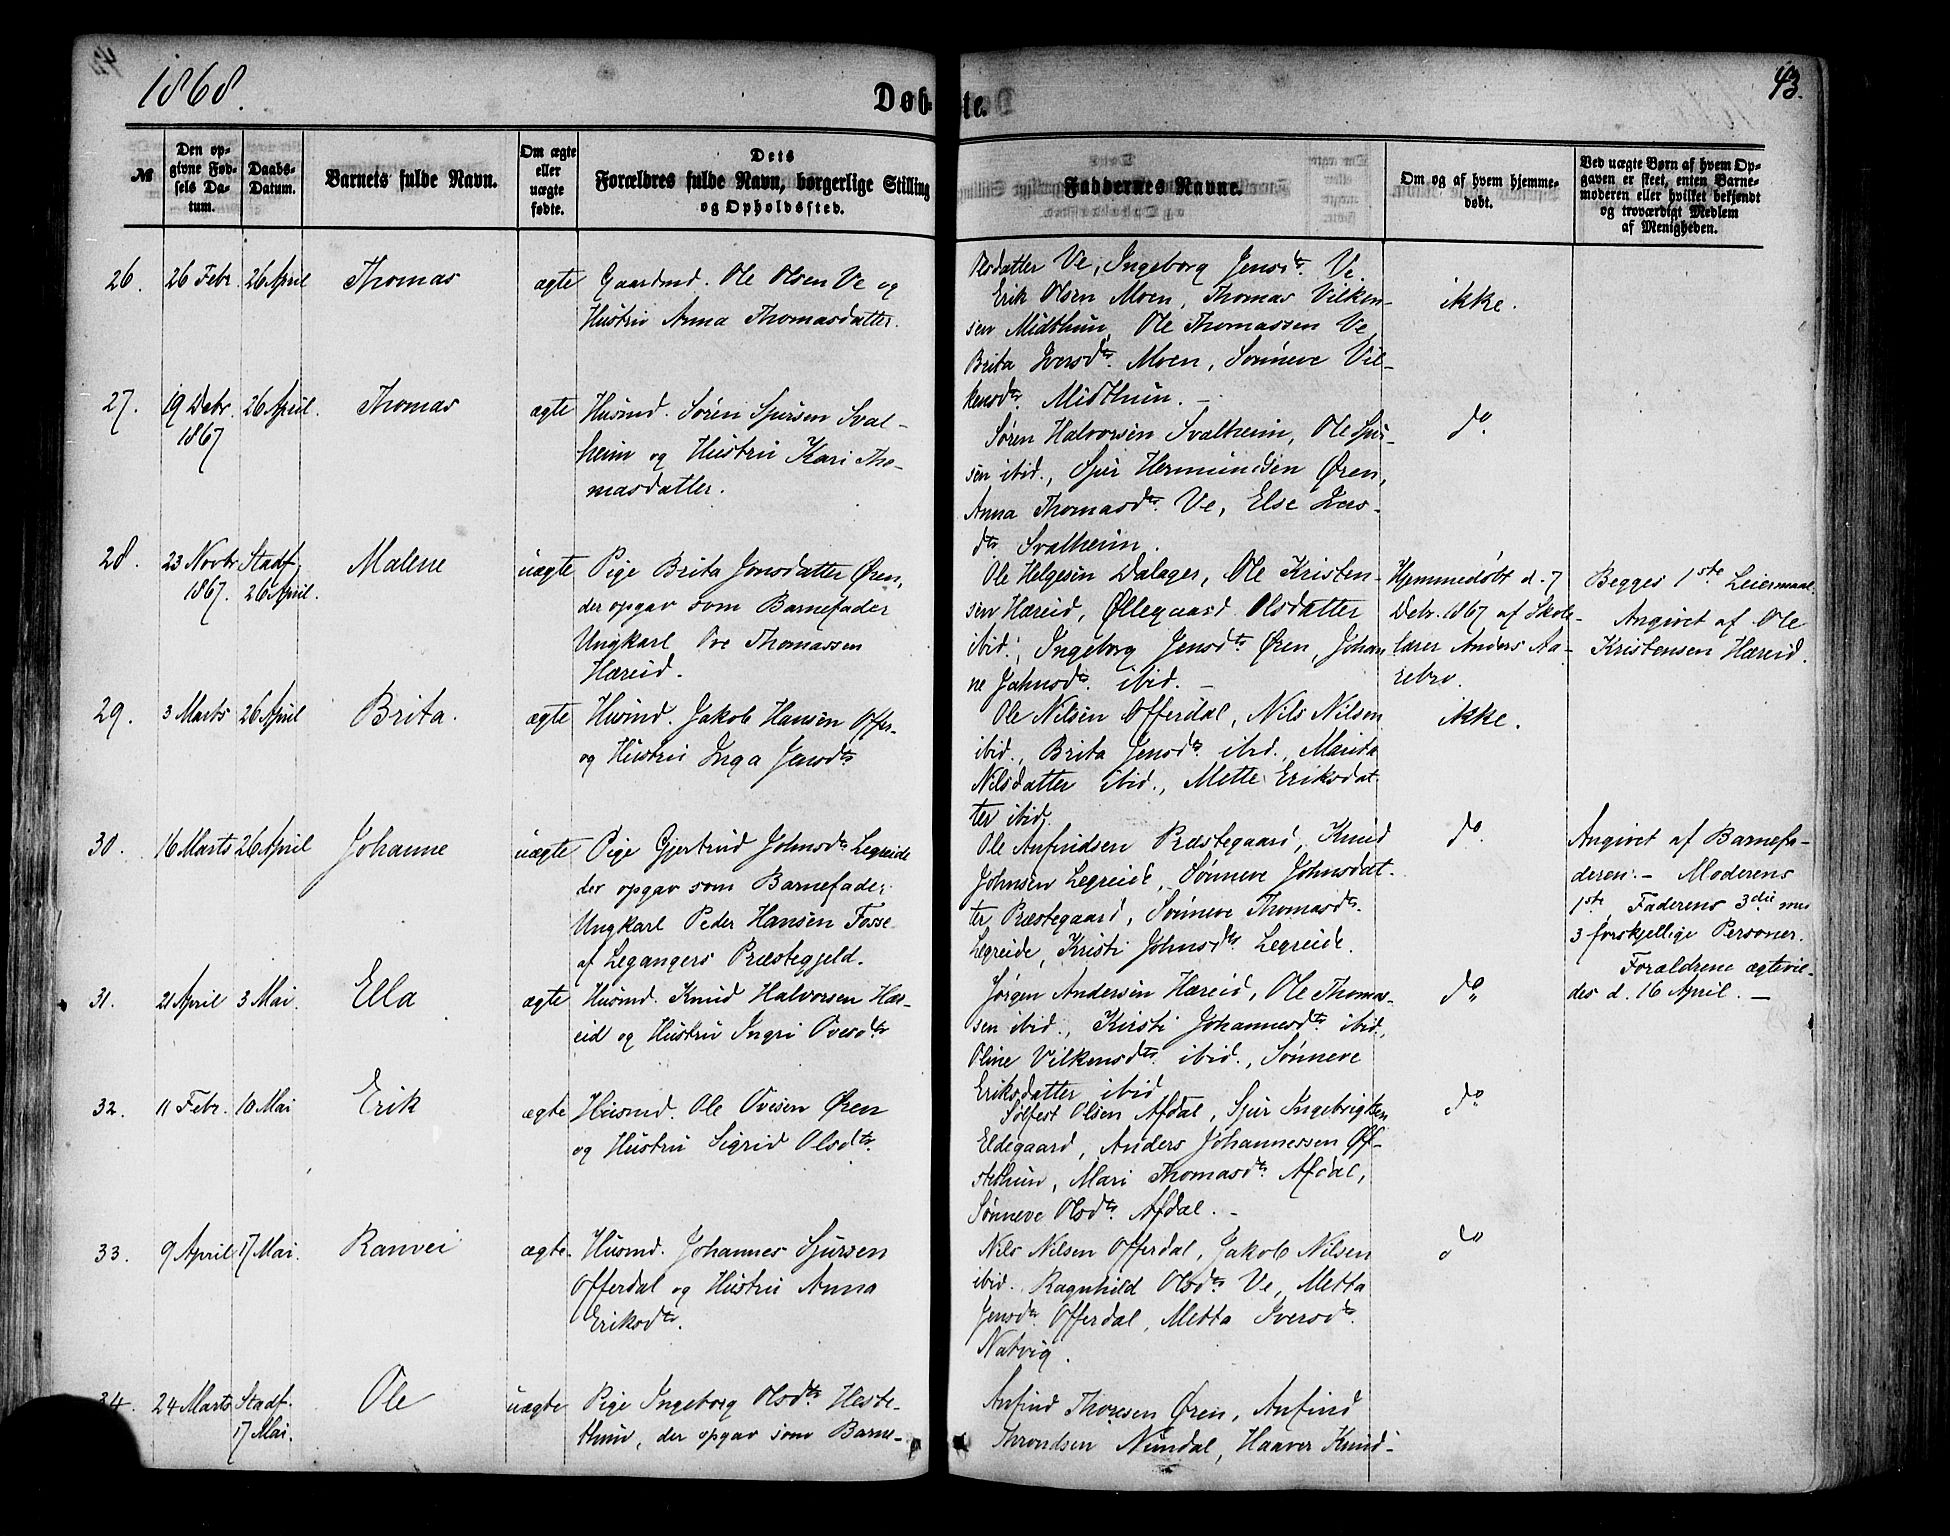 1868.
Døbte.
43.
№
Den opgivne Fødsels Datum.
Daabs-Datum.
Barnets fulde Navn.
Om ægte eller uægte fødte.
Dets Forældres fulde Navn, borgerlige Stilling og Opholdssted.
Faddernes Navne.
Om og af hvem hjemmedøbt.
Ved uægte Børn af hvem Opgaven er skeet, enten Barnemoderen eller hvilket bekjendt og troværdigt Medlem af Menigheden.
Olsdatter Ve, Ingeborg Jensdtr. Ve.
26. 26 Febr. 26 April Thomas ægte Gaardmd. Ole Olsen Ve og
Hustru Anna Thomasdatter.
Erik Olsen Moen, Thomas Vilken-
sen Midthun, Ole Thomassen Ve
Brita Iversdtr. Moen, Sønneve Vil-
kensdtr. Midthun. –
ikke.
27. 19 Debr. 26 April. Thomas ægte Husmd. Søren Sjursen Sval-
1867 heim og Hustru Kari Tho-
masdatter.
Søren Halvorsen Svalheim, Ole Sjur-
sen ibid., Sjur Hermundsen Øren,
Anna Thomasdtr. Ve, Else Lars-
dtr. Svalheim.
do.
28. 23 Novbr. Stadf. Malene uægte Pige Brita Jonsdatter Øren,
1867. 26 April. der opgav som Barnefader
Ungkarl Ove Thomassen
Hæreid.
Ole Helgesen Dalager, Ole Kristen-
sen Hæreid, Øllegaard Olsdatter
ibid., Ingeborg Jensdtr. Øren, Johan
ne Johnsdtr. ibid. –
Hjemmedøbt d. 7
Debr. 1867 af Skole-
lærer Anders Aa-
rebro.
Begges 1ste Leiermaal.
Angivet af Ole
Kristensen Hæreid.
29. 3 Marts 26 April Brita. ægte Husmd. Jakob Hansen Offer-
og Hustru Inga Jensdtr.
Ole Nilsen Offerdal, Nils Nilsen
ibid., Brita Jensdtr. ibid. Marita
Nilsdatter ibid., Mette Eriksdat-
ter ibid.
ikke.
30. 16 Marts 26 April Johanne uægte Pige Gjertrud Johnsdtr. Legreide
der opgav som Barnefader
Ungkarl Peder Hansen Fosse
af Legangers Præstegjeld.
Ole Anfindsen Præstegaard, Knud
Johnsen Legreide, Sønneve Johnsdat-
ter Præstegaard, Sønneve Thomasdtr.
Legreide, Kristi Johnsdtr. Legreide.
do.
Angivet af Barnefa-
deren. – Moderens
1ste Faderens 3die med
3 forskjellige Personer.
Forældrene ægtevie-
des d. 16 April. –
31. 21 April 3 Mai. Ella ægte Husmd. Knud Halvorsen Hæ-
eid og Hustru Ingri Ovesdtr.
Jørgen Andersen Hæreid, Ole Thomas-
sen ibid., Kirsti Johannesdtr. ibid.,
Oline Vilkensdtr. ibid., Sønneve
Eriksdatter ibid
do.
32. 11 Febr. 10 Mai Erik ægte Husmd. Ole Ovesen Øren
og Hustru Sigrid Olsdtr.
Sølfest Olsen Afdal, Sjur Ingebrigtsen
Eldegaard, Anders Johannessen Øf-
stethun, Mari Thomasdtr. Afdal,
Sønneve Olsdtr. Afdal. –
do
33. 9 April 17 Mai. Ranvei ægte. Husmd. Johannes Sjursen
Offerdal og Hustru Anna
Eriksdtr.
Nils Nilsen Offerdal, Jakob Nilsen
ibid. Ragnhild Olsdtr. Ve, Metta
Jensdtr. Offerdal, Metta Iversdtr.
Natvig.
do
34. 24 Marts Stadf. Ole uægte Pige Ingeborg Olsdtr. Heste-
17 Mai. thun, der opgav som Barne-
Anfind Thoresen Øren, Anfind
Throndsen Nundal, Haaver Knud-